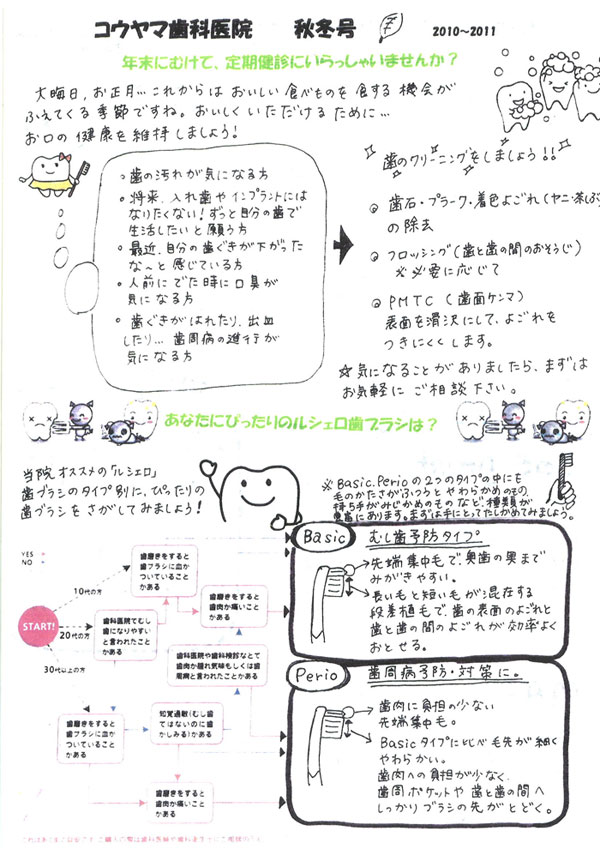 コウヤマ歯科医院 秋冬号 2010〜2011
年末にむけて、定期健診にいらっしゃいませんか？
大晦日、お正月…これからは おいしい食べものを食する機会が
ふえてくる季節ですね。おいしくいただけるために…
お口の健康を維持しましょう！
・歯の汚れが気になる方
・将来、入れ歯やインプラントには
なりたくない！ずっと自分の歯で
生活したいと願う方
・最近、自分の歯ぐきが下がった
な〜と感じている方
・人前にでた時に口臭が
気になる方
・歯ぐきがはれたり、出血
したり… 歯周病の進行が
気になる方
歯のクリーニングをしましょう!!
歯石・プラーク・着色よごれ(ヤニ・茶しぶ)
の除去
フロッシング(歯と歯の間のおそうじ)
※必要に応じて
PMTC (歯面ケンマ)
表面を滑沢にして、よごれを
つきにくくします。
☆気になることがありましたら、まずは
お気軽にご相談下さい。
あなたにぴったりのルシェロ歯ブラシは？
当院オススメの「ルシェロ」
歯ブラシのタイプ別に、ぴったりの
歯ブラシをさがしてみましょう！
※Basic.Perioの2つのタイプの中にも
毛のかたさがふつうとやわらかめのもの、
持ち手がみじかめのものなど、種類が
豊富にあります。まずは手にとってたしかめてみましょう。
YES
NO
START!
10代の方
20代の方
30代以上の方
歯磨きをすると
歯ブラシに血が
ついていることが
ある
歯磨きをすると
歯肉が痛いことが
ある
歯科医院でむし
歯になりやすい
と言われたことが
ある
歯科医院や歯科検診などで
歯肉が腫れ気味もしくは歯
周病と言われたことがある
歯磨きをすると
歯ブラシに血が
ついていることが
ある
知覚過敏(むし歯
ではないのに歯
がしみる)がある
歯磨きをすると
歯肉が痛いこと
がある
Basic むし歯予防タイプ
先端集中毛で、奥歯の奥まで
みがきやすい。
長い毛と短い毛が混在する
段差植毛で歯の表面のよごれと
歯と歯の間のよごれが効率よく
おとせる。
Perio 歯周病予防・対策に。
歯肉に負担の少ない
先端集中毛。
Basicタイプに比べ毛先が細く
やわらかい。
歯肉への負担が少なく、
歯周ポケットや歯と歯の間へ
しっかりブラシの先がとどく。